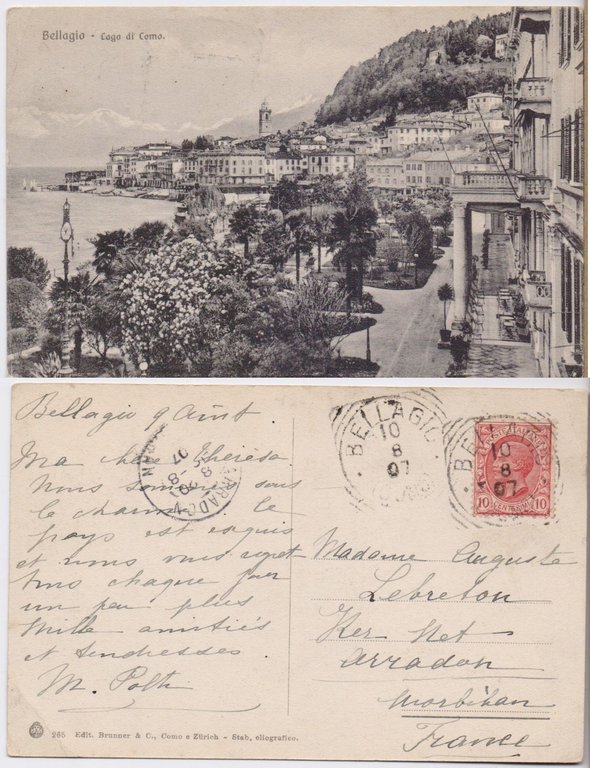 Bellagio - Lago di Como.
Bellagio 9 Aout
Ma chère Theresa
Nous sommes sous
le charme le
pays est exquis
et nous vous regret-
tons chaque jour
un peu plus
Mille amitiés
et tendresses
M. Polti
BELLAGIO
10
8
07
(COMO)
BELLAGIO
10
8
07
ARRADON
POSTE ITALIANE
10 CENTESIMI 10
Madame Auguste
Lebreton
Ker Net
Arradon
Morbihan
France
265 Edit. Brunner & C., Como e Zürich - Stab. eliografico.